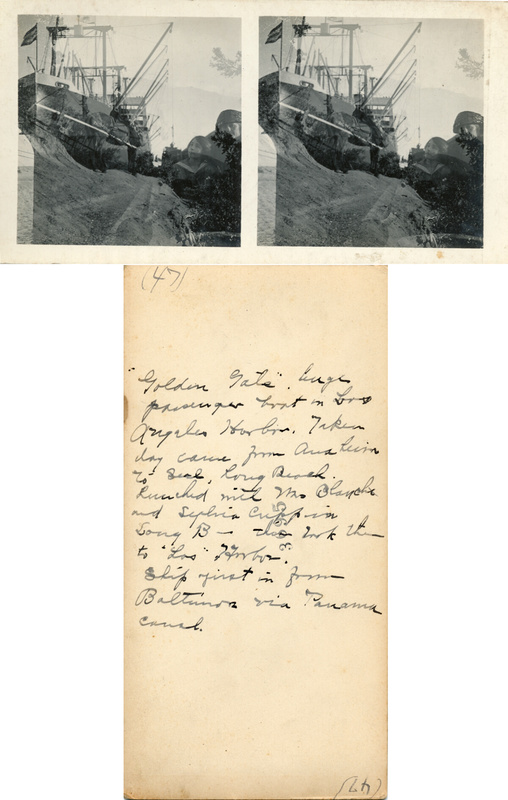 (47)
"Golden Gate". huge
passenger boat in Los
Angeles Harbor. Taken
day came from Anaheim
to Seal, Long Beach.
Lunched with Mrs Blanche
and Sophia in
Long B – took them
to "Los" Harbor.
Ship first in from
Baltimore via Panama
canal.
(47)